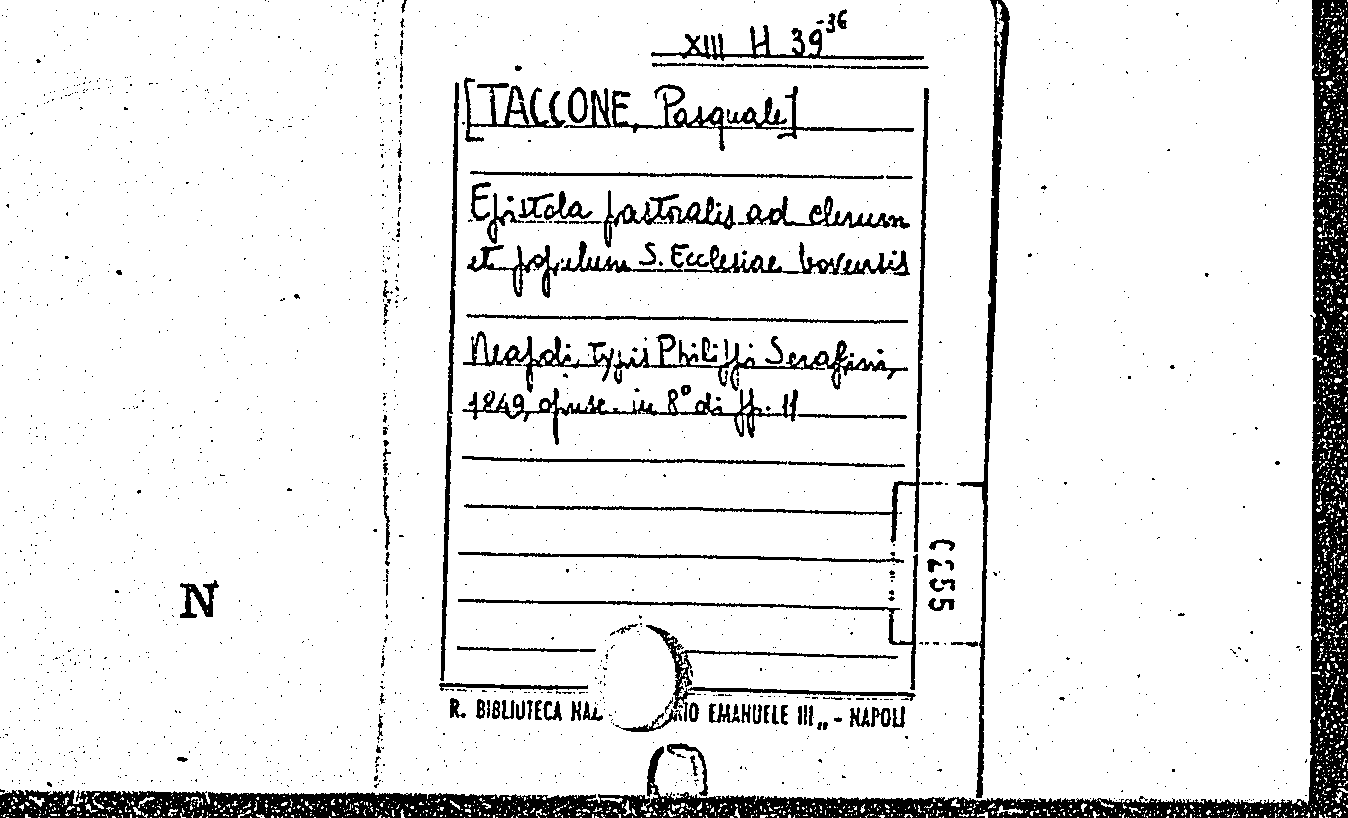 XIII H 39-36
[TACCONE, Pasquale]
Epistola pastoralis ad clerum
et populum S. Ecclesiae bovensis
Neapoli, typis Philippi Serafini,
1849, opusc. in 8° di pp. 11
N
R. BIBLIOTECA NAZ RIO EMANUELE III„ - NAPOLI